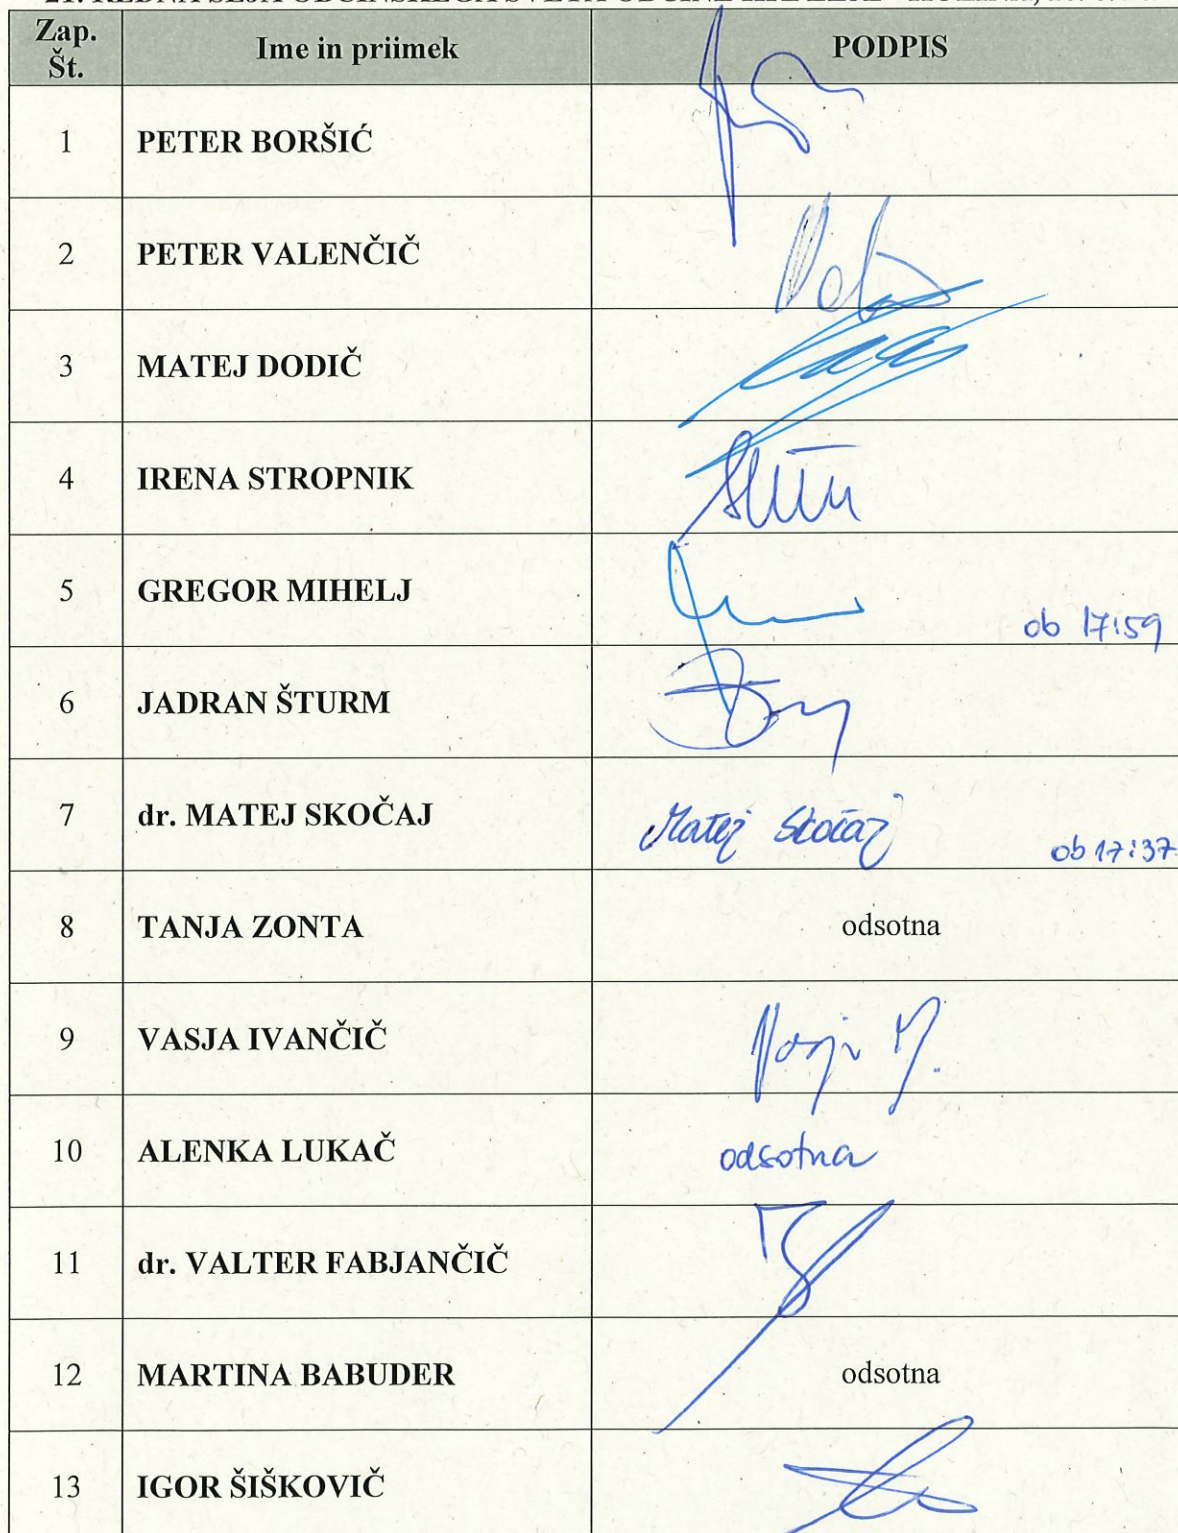 21. REDNA SEJA OBČINSKEGA SVETA OBČINE
Zap. Št. Ime in priimek PODPIS
1 PETER BORŠIĆ
2 PETER VALENČIČ
3 MATEJ DODIČ
4 IRENA STROPNIK
5 GREGOR MIHELJ ob 17:59
6 JADRAN ŠTURM
7 dr. MATEJ SKOČAJ Matej Skočaj ob 17:37
8 TANJA ZONTA odsotna
9 VASJA IVANČIČ
10 ALENKA LUKAČ odsotna
11 dr. VALTER FABJANČIČ
12 MARTINA BABUDER odsotna
13 IGOR ŠIŠKOVIČ